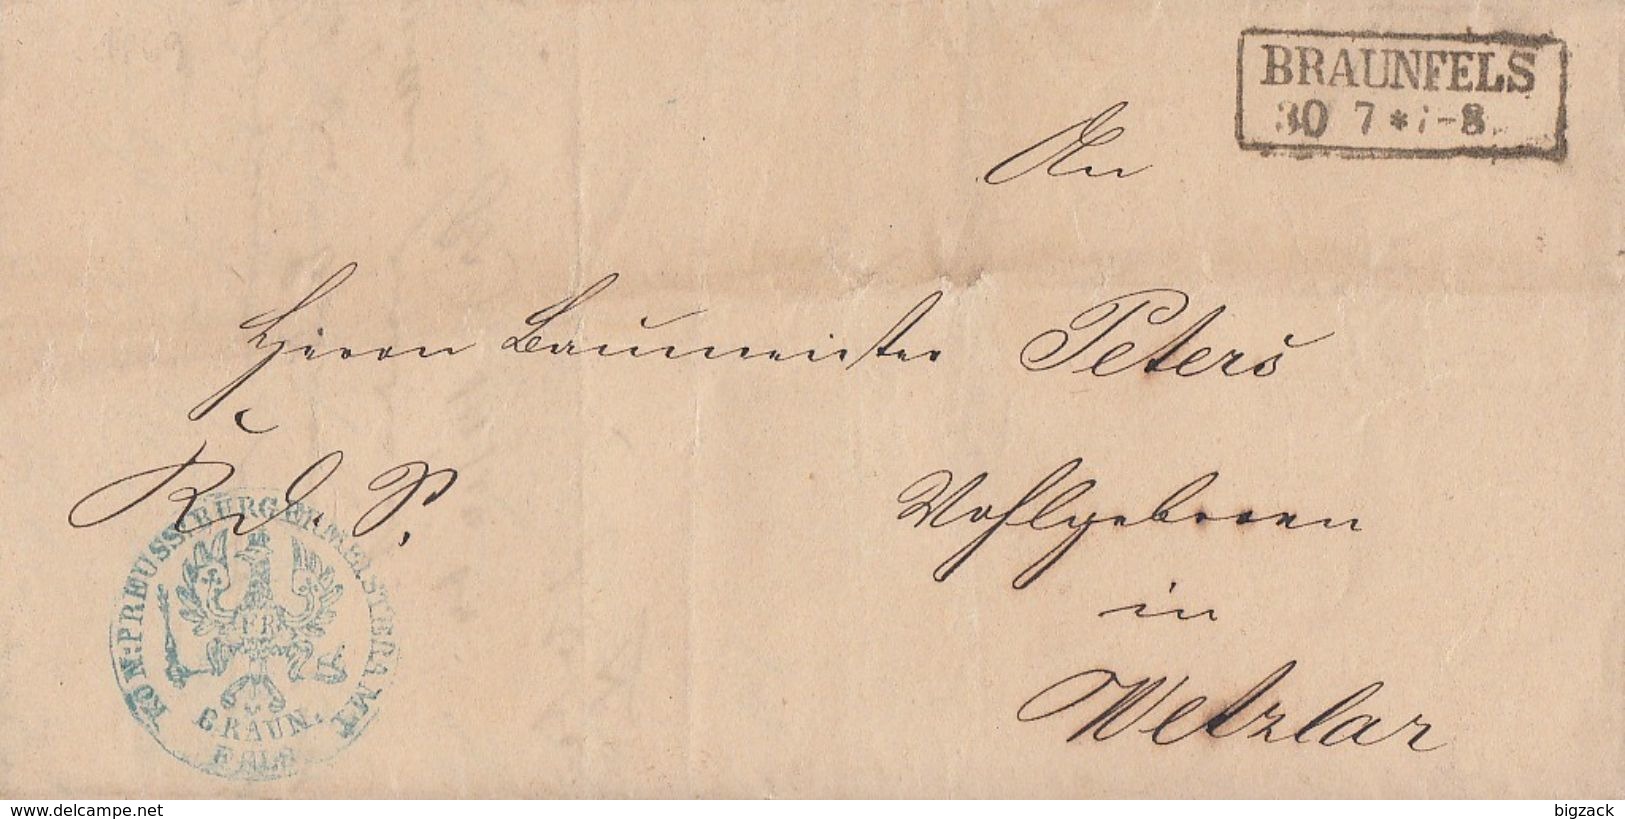 BRAUNFELS
30 7 * 7-8
An
Herrn Baumeister Peters
R. d. S.
Wohlgeboren
in
Wetzlar
KÖN: PREUSS: BÜRGERMEISTERAMT
FR
BRAUN.
FELS
www.delcampe.net
bigzack